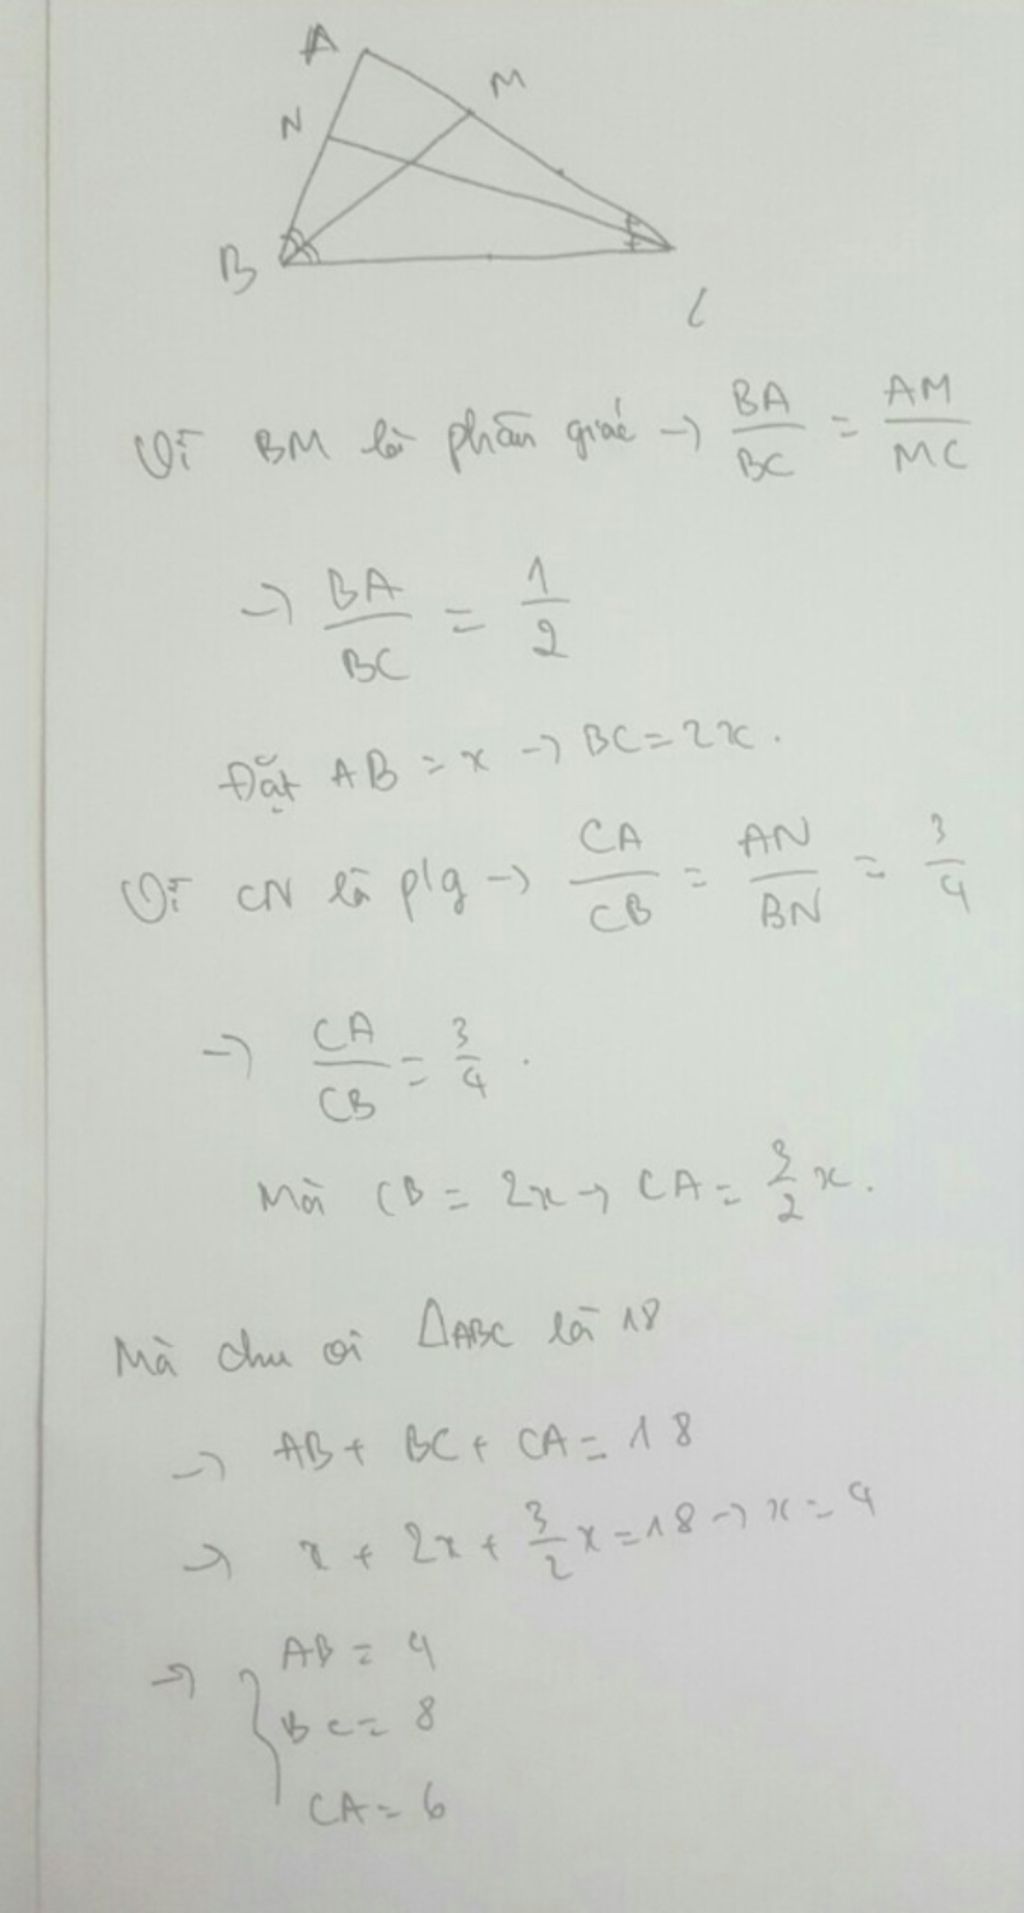 A
M
N
B
C
Vì BM là phân giác → BA/BC = AM/MC
→ BA/BC = 1/2
Đặt AB = x → BC = 2x.
Vì CN là p/g → CA/CB = AN/BN = 3/4
→ CA/CB = 3/4.
Mà CB = 2x → CA = 3/2 x.
Mà chu vi ΔABC là 18
→ AB + BC + CA = 18
→ x + 2x + 3/2 x = 18 → x = 4
→ { AB = 4
BC = 8
CA = 6